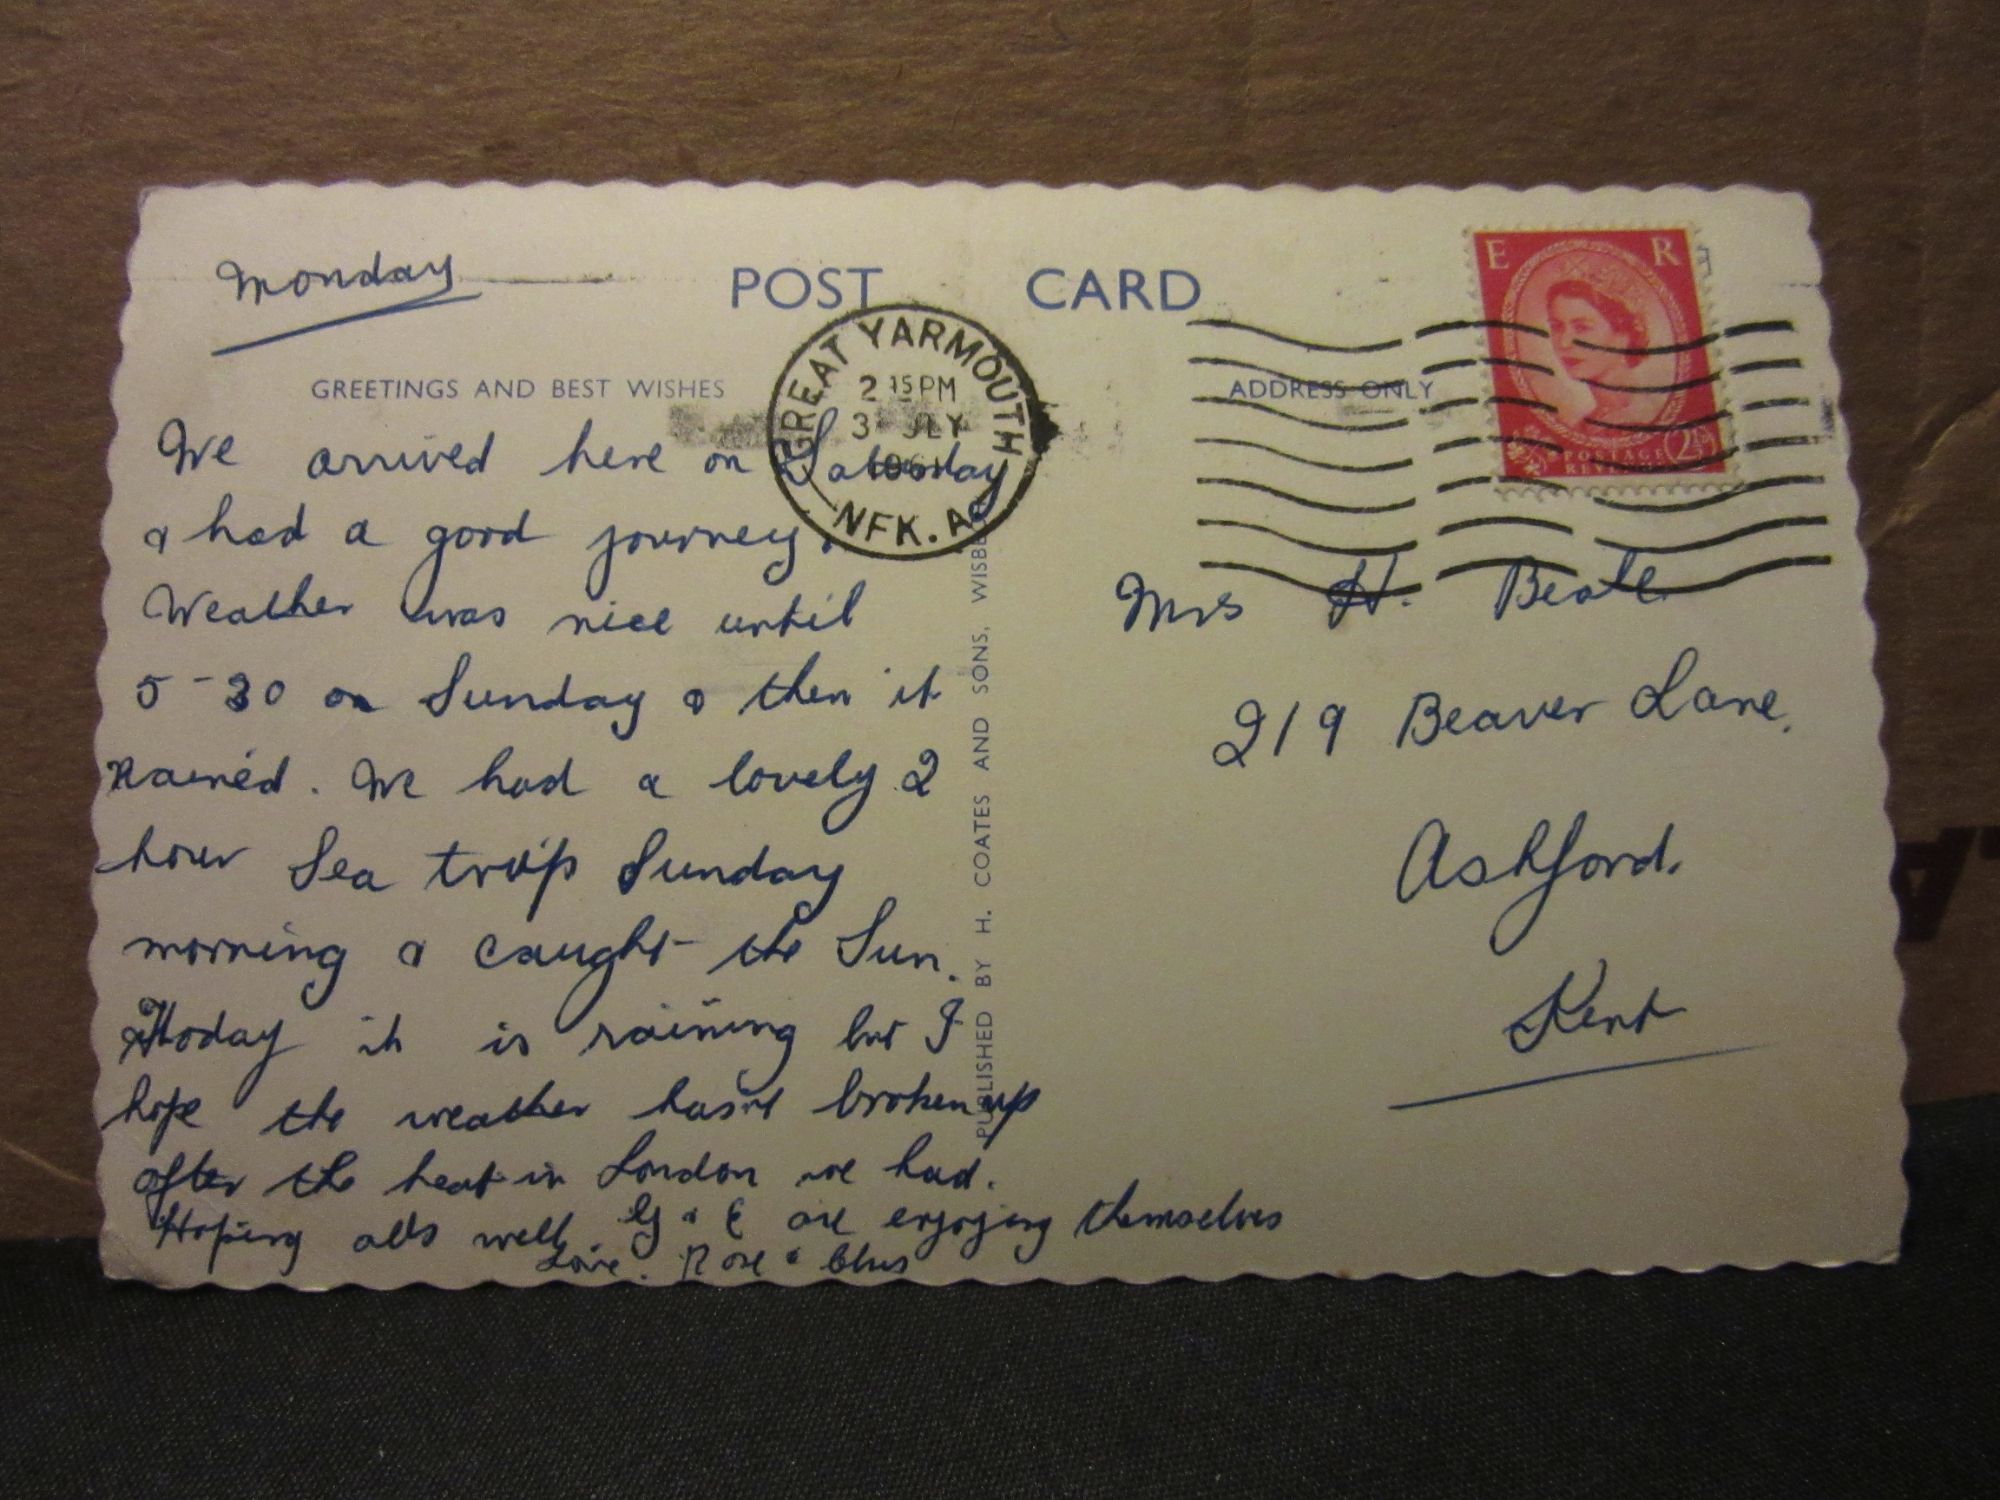 Monday
POST CARD
GREETINGS AND BEST WISHES
ADDRESS ONLY
GREAT YARMOUTH
2 15 PM
3 JLY
NFK. A
E R
POSTAGE
REVENUE
2½D
We arrived here on Saturday
& had a good journey.
Weather was nice until
5-30 on Sunday & then it
Rained. We had a lovely 2
hour Sea trip Sunday
morning & caught the Sun.
today it is raining but I
hope the weather hasnt broken up
after the heat in London we had.
Hoping alls well G & E are enjoying themselves
Love. Rose &
Mrs H. Beale
219 Beaver Lane,
Ashford.
Kent
PUBLISHED BY H. COATES AND SONS, WISBE